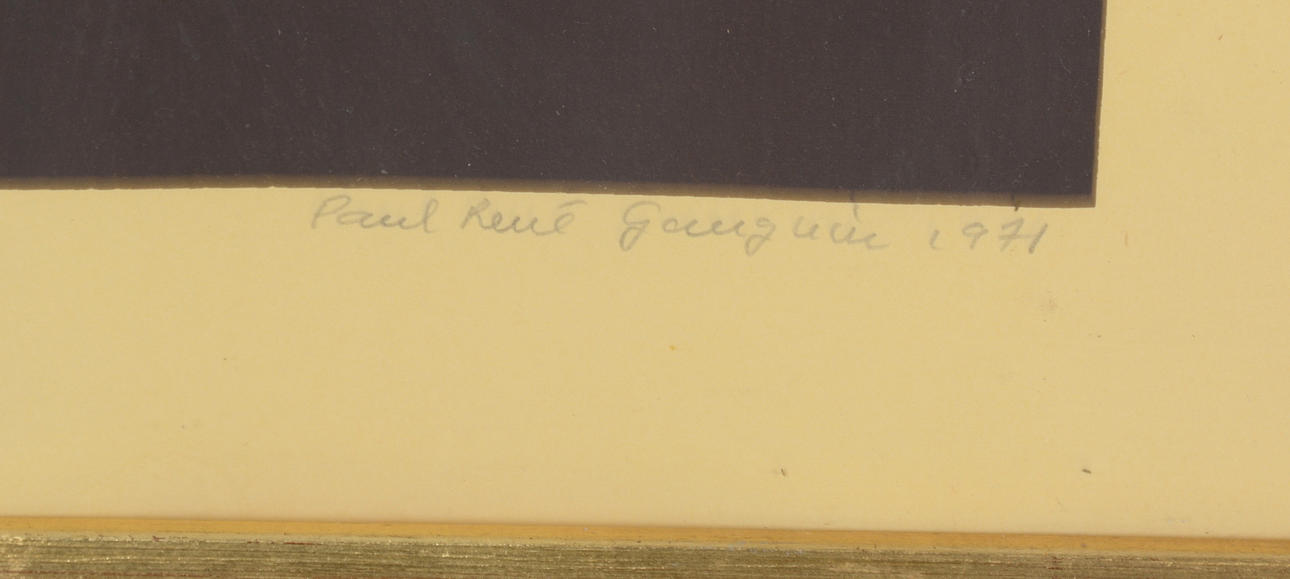 Paul René Gauguin 1971